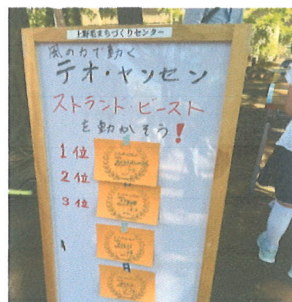 上野毛まちづくりセンター
風の力で動く
テオ・ヤンセン
ストランド・ビースト
を動かそう!
1位
2位
3位